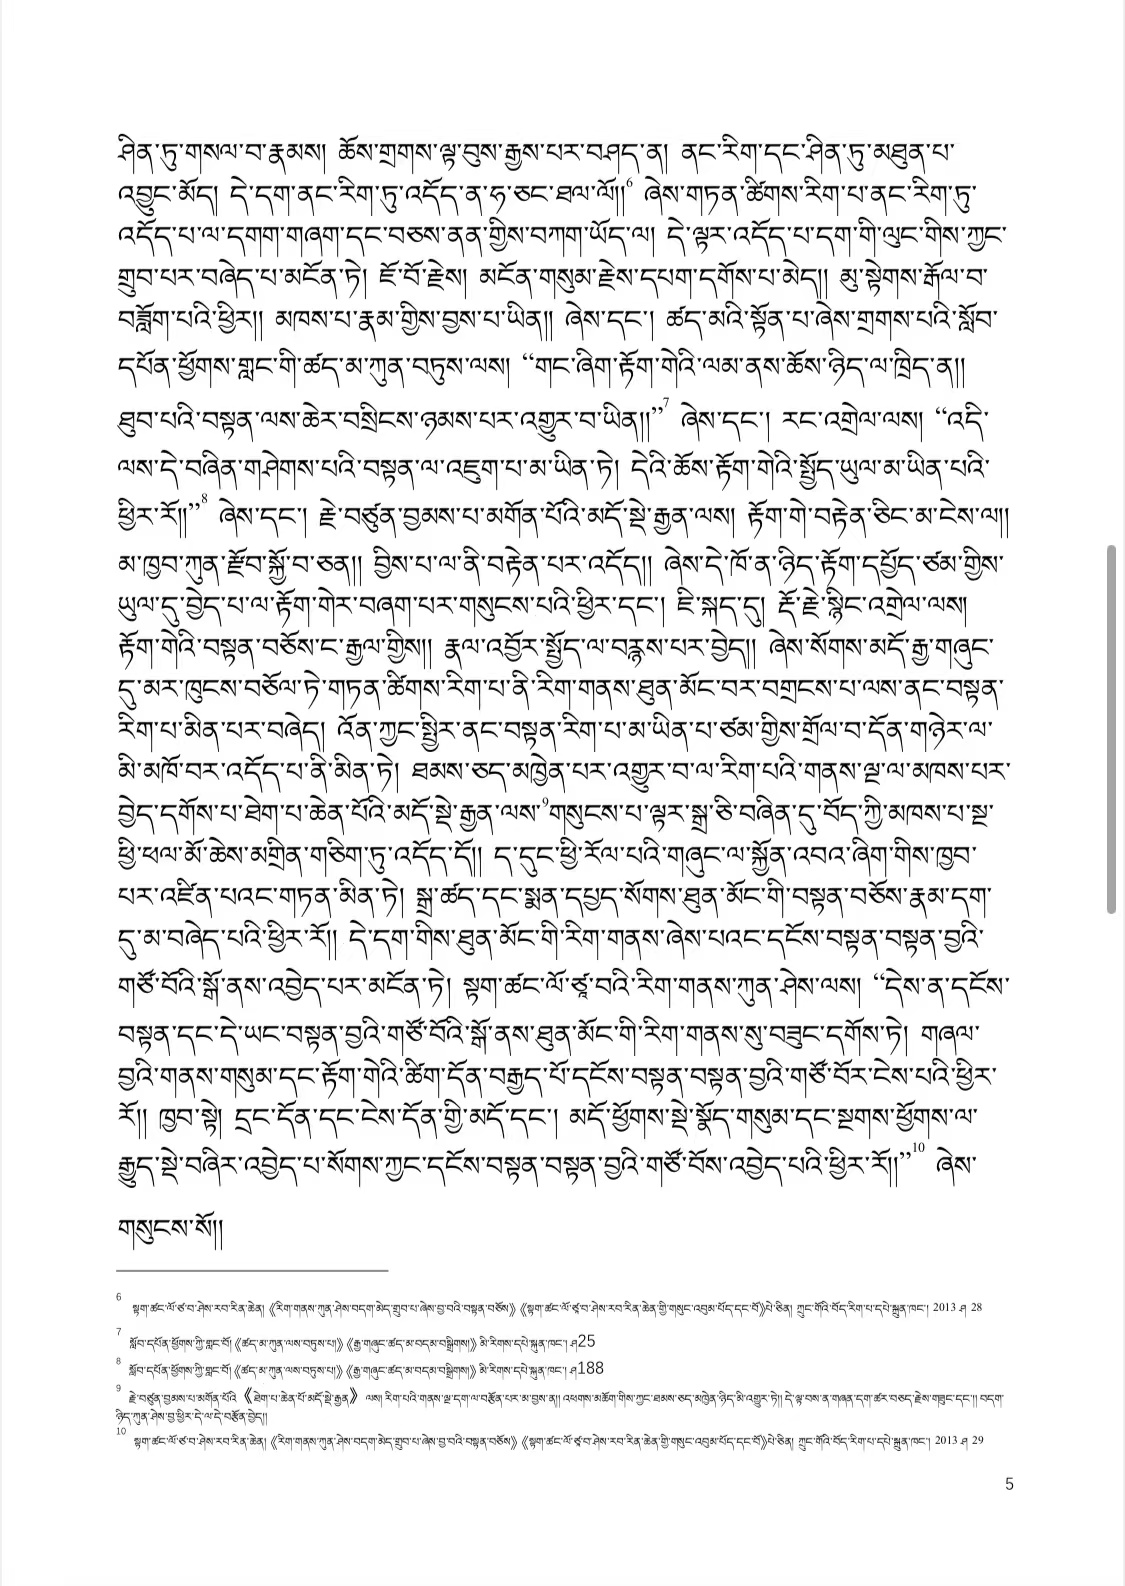 ཤིན་ཏུ་གསལ་བ་རྣམས། ཆོས་གྲགས་ལྟ་བུས་རྒྱས་པར་བཤད་ན། ནང་རིག་དང་ཤིན་ཏུ་མཐུན་པ་
འབྱུང་མོད། དེ་དག་ནང་རིག་ཏུ་འདོད་ན་ཧ་ཅང་ཐལ་ལོ།།6 ཞེས་གཏན་ཚིགས་རིག་པ་ནང་རིག་ཏུ་
འདོད་པ་ལ་དགག་གཞག་དང་བཅས་ནན་གྱིས་བཀག་ཡོད་ལ། དེ་ལྟར་འདོད་པ་དག་གི་ལུང་གིས་ཀྱང་
གྲུབ་པར་བཞེད་པ་མངོན་ཏེ། ཇོ་བོ་རྗེས། མངོན་གསུམ་རྗེས་དཔག་དགོས་པ་མེད།། མུ་སྟེགས་རྒོལ་བ་
བཟློག་པའི་ཕྱིར།། མཁས་པ་རྣམ་གྱིས་བྱས་པ་ཡིན།། ཞེས་དང་། ཚད་མའི་སྟོན་པ་ཞེས་གྲགས་པའི་སློབ་
དཔོན་ཕྱོགས་གླང་གི་ཚད་མ་ཀུན་བཏུས་ལས། “གང་ཞིག་རྟོག་གེའི་ལམ་ནས་ཆོས་ཉིད་ལ་ཁྲིད་ན།།
ཐུབ་པའི་བསྟན་ལས་ཆེར་བསྲིངས་ཉམས་པར་འགྱུར་བ་ཡིན།།”7 ཞེས་དང་། རང་འགྲེལ་ལས། “འདི་
ལས་དེ་བཞིན་གཤེགས་པའི་བསྟན་ལ་འཇུག་པ་མ་ཡིན་ཏེ། དེའི་ཆོས་རྟོག་གེའི་སྤྱོད་ཡུལ་མ་ཡིན་པའི་
ཕྱིར་རོ།།”8 ཞེས་དང་། རྗེ་བཙུན་བྱམས་པ་མགོན་པོའི་མདོ་སྡེ་རྒྱན་ལས། རྟོག་གེ་བརྟེན་ཅིང་མ་ངེས་ལ།།
མ་ཁྱབ་ཀུན་རྫོབ་སྐྱོ་བ་ཅན།། བྱིས་པ་ལ་ནི་བརྟེན་པར་འདོད།། ཞེས་དེ་ཁོ་ན་ཉིད་རྟོག་དཔྱོད་ཙམ་གྱིས་
ཡུལ་དུ་བྱེད་པ་ལ་རྟོག་གེར་བཞག་པར་གསུངས་པའི་ཕྱིར་དང་། ཇི་སྐད་དུ། རྡོ་རྗེ་སྙིང་འགྲེལ་ལས།
རྟོག་གེའི་བསྟན་བཅོས་ང་རྒྱལ་གྱིས།། རྣལ་འབྱོར་སྤྱོད་ལ་བརྙས་པར་བྱེད།། ཞེས་སོགས་མདོ་རྒྱ་གཞུང་
དུ་མར་ཁུངས་བཅོལ་ཏེ་གཏན་ཚིགས་རིག་པ་ནི་རིག་གནས་ཐུན་མོང་བར་བགྲངས་པ་ལས་ནང་བསྟན་
རིག་པ་མིན་པར་བཞེད། འོན་ཀྱང་སྤྱིར་ནང་བསྟན་རིག་པ་མ་ཡིན་པ་ཙམ་གྱིས་གྲོལ་བ་དོན་གཉེར་ལ་
མི་མཁོ་བར་འདོད་པ་ནི་མིན་ཏེ། ཐམས་ཅད་མཁྱེན་པར་འགྱུར་བ་ལ་རིག་པའི་གནས་ལྔ་ལ་མཁས་པར་
བྱེད་དགོས་པ་ཐེག་པ་ཆེན་པོའི་མདོ་སྡེ་རྒྱན་ལས་9གསུངས་པ་ལྟར་སྒྲ་ཅི་བཞིན་དུ་བོད་ཀྱི་མཁས་པ་སྔ་
ཕྱི་ཕལ་མོ་ཆེས་མགྲིན་གཅིག་ཏུ་འདོད་དོ།། ད་དུང་ཕྱི་རོལ་པའི་གཞུང་ལ་སྐྱོན་འབའ་ཞིག་གིས་ཁྱབ་
པར་འཛིན་པའང་གཏན་མིན་ཏེ། སྒྲ་ཚད་དང་སྨན་དཔྱད་སོགས་ཐུན་མོང་གི་བསྟན་བཅོས་རྣམ་དག་
དུ་མ་བཞེད་པའི་ཕྱིར་རོ།། དེ་དག་གིས་ཐུན་མོང་གི་རིག་གནས་ཞེས་པའང་དངོས་བསྟན་བསྟན་བྱའི་
གཙོ་བོའི་སྒོ་ནས་འབྱེད་པར་མངོན་ཏེ། སྟག་ཚང་ལོ་ཙཱ་བའི་རིག་གནས་ཀུན་ཤེས་ལས། “དེས་ན་དངོས་
བསྟན་དང་དེ་ཡང་བསྟན་བྱའི་གཙོ་བོའི་སྒོ་ནས་ཐུན་མོང་གི་རིག་གནས་སུ་བཟུང་དགོས་ཏེ། གཞལ་
བྱའི་གནས་གསུམ་དང་རྟོག་གེའི་ཚིག་དོན་བརྒྱད་པོ་དངོས་བསྟན་བསྟན་བྱའི་གཙོ་བོར་ངེས་པའི་ཕྱིར་
རོ།། ཁྱབ་སྟེ། དྲང་དོན་དང་ངེས་དོན་གྱི་མདོ་དང་། མདོ་ཕྱོགས་སྡེ་སྣོད་གསུམ་དང་སྔགས་ཕྱོགས་ལ་
རྒྱུད་སྡེ་བཞིར་འབྱེད་པ་སོགས་ཀྱང་དངོས་བསྟན་བསྟན་བྱའི་གཙོ་བོས་འབྱེད་པའི་ཕྱིར་རོ།།”10 ཞེས་
གསུངས་སོ།།
6 སྟག་ཚང་ལོ་ཙ་བ་ཤེས་རབ་རིན་ཆེན། 《རིག་གནས་ཀུན་ཤེས་བདག་མེད་གྲུབ་པ་ཞེས་བྱ་བའི་བསྟན་བཅོས》 《སྟག་ཚང་ལོ་ཙཱ་བ་ཤེས་རབ་རིན་ཆེན་གྱི་གསུང་འབུམ་པོད་དང་བོ》པེ་ཅིན། ཀྲུང་གོའི་བོད་རིག་པ་དཔེ་སྐྲུན་ཁང་། 2013 ཤ 28
7 སློབ་དཔོན་ཕྱོགས་ཀྱི་གླང་བོ། 《ཚད་མ་ཀུན་ལས་བཏུས་པ།》 《རྒྱ་གཞུང་ཚད་མ་བདམ་བསྒྲིགས།》 མི་རིགས་དཔེ་སྐྲུན་ཁང་། ཤ25
8 སློབ་དཔོན་ཕྱོགས་ཀྱི་གླང་བོ། 《ཚད་མ་ཀུན་ལས་བཏུས་པ།》 《རྒྱ་གཞུང་ཚད་མ་བདམ་བསྒྲིགས།》 མི་རིགས་དཔེ་སྐྲུན་ཁང་། ཤ188
9 རྗེ་བཙུན་བྱམས་པ་མགོན་པོའི 《ཐེག་པ་ཆེན་པོ་མདོ་སྡེ་རྒྱན》 ལས། རིག་པའི་གནས་ལྔ་དག་ལ་བརྩོན་པར་མ་བྱས་ན།། འཕགས་མཆོག་གིས་ཀྱང་ཐམས་ཅད་མཁྱེན་ཉིད་མི་འགྱུར་ཏེ།། དེ་ལྟ་བས་ན་གཞན་དག་ཚར་བཅད་རྗེས་གཟུང་དང་།། བདག་
ཉིད་ཀུན་ཤེས་བྱ་ཕྱིར་དེ་ལ་དེ་བརྩོན་བྱེད།།
10 སྟག་ཚང་ལོ་ཙ་བ་ཤེས་རབ་རིན་ཆེན། 《རིག་གནས་ཀུན་ཤེས་བདག་མེད་གྲུབ་པ་ཞེས་བྱ་བའི་བསྟན་བཅོས》 《སྟག་ཚང་ལོ་ཙཱ་བ་ཤེས་རབ་རིན་ཆེན་གྱི་གསུང་འབུམ་པོད་དང་བོ》པེ་ཅིན། ཀྲུང་གོའི་བོད་རིག་པ་དཔེ་སྐྲུན་ཁང་། 2013 ཤ 29
5